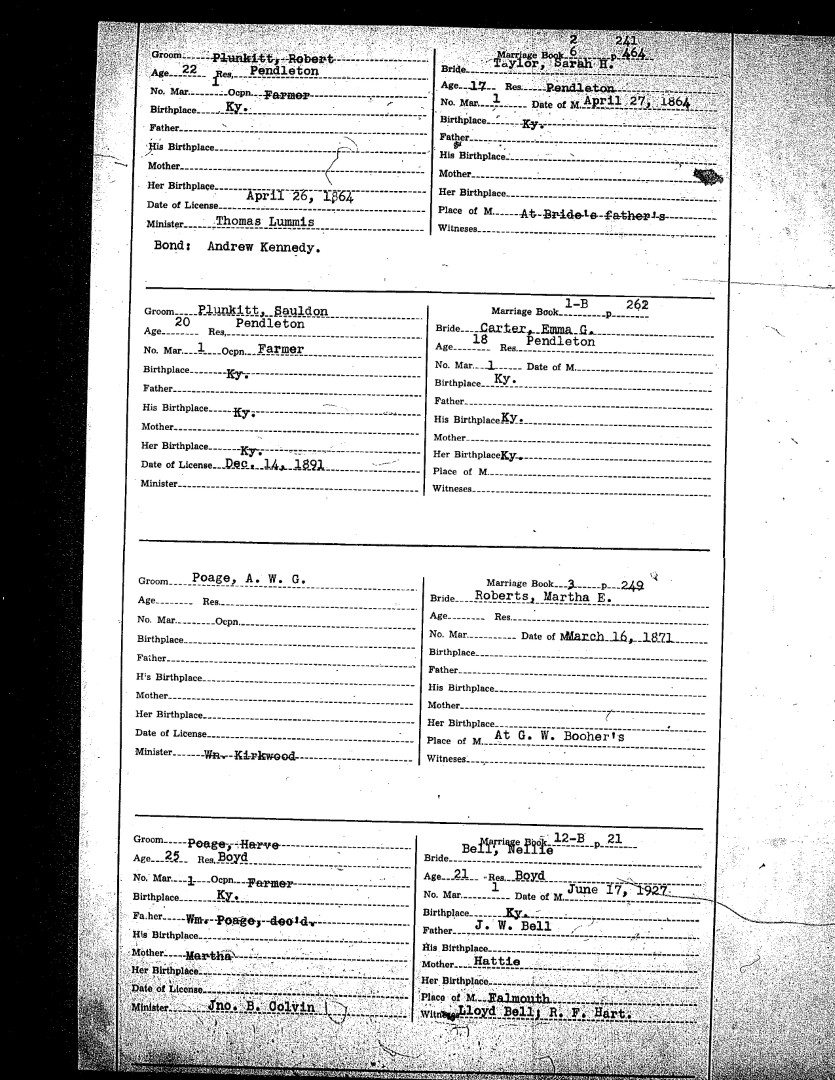 2 241
Marriage Book 6 p. 464
Groom Plunkitt, Robert
Age 22 Res. Pendleton
No. Mar. 1 Ocpn. Farmer
Birthplace Ky.
Father
His Birthplace
Mother
Her Birthplace
Date of License April 26, 1864
Minister Thomas Lummis
Bond: Andrew Kennedy.
Bride Taylor, Sarah H.
Age 17 Res. Pendleton
No. Mar. 1 Date of M. April 27, 1864
Birthplace Ky.
Father
His Birthplace
Mother
Her Birthplace
Place of M. At Bride's father's
Witnesses
Groom Plunkitt, Sauldon
Age 20 Res. Pendleton
No. Mar. 1 Ocpn. Farmer
Birthplace Ky.
Father
His Birthplace Ky.
Mother
Her Birthplace Ky.
Date of License Dec. 14, 1891
Minister
Marriage Book 1-B p. 262
Bride Carter, Emma G.
Age 18 Res. Pendleton
No. Mar. 1 Date of M.
Birthplace Ky.
Father
His Birthplace Ky.
Mother
Her Birthplace Ky.
Place of M.
Witnesses
Groom Poage, A. W. G.
Age Res.
No. Mar. Ocpn.
Birthplace
Father
H's Birthplace
Mother
Her Birthplace
Date of License
Minister Wm. Kirkwood
Marriage Book 3 p 249
Bride Roberts, Martha E.
Age Res.
No. Mar. Date of M. March 16, 1871
Birthplace
Father
His Birthplace
Mother
Her Birthplace
Place of M. At G. W. Booher's
Witnesses
Groom Poage, Harve
Age 25 Res. Boyd
No. Mar. 1 Ocpn. Farmer
Birthplace Ky.
Fa.her Wm. Poage, dec'd.
H's Birthplace
Mother Martha
Her Birthplace
Date of License
Minister Jno. B. Colvin
Marriage Book 12-B p. 21
Bride Bell, Nellie
Age 21 Res. Boyd
No. Mar. 1 Date of M. June 17, 1927
Birthplace Ky.
Father J. W. Bell
His Birthplace
Mother Hattie
Her Birthplace
Place of M. Falmouth
Witnesses Lloyd Bell; R. F. Hart.